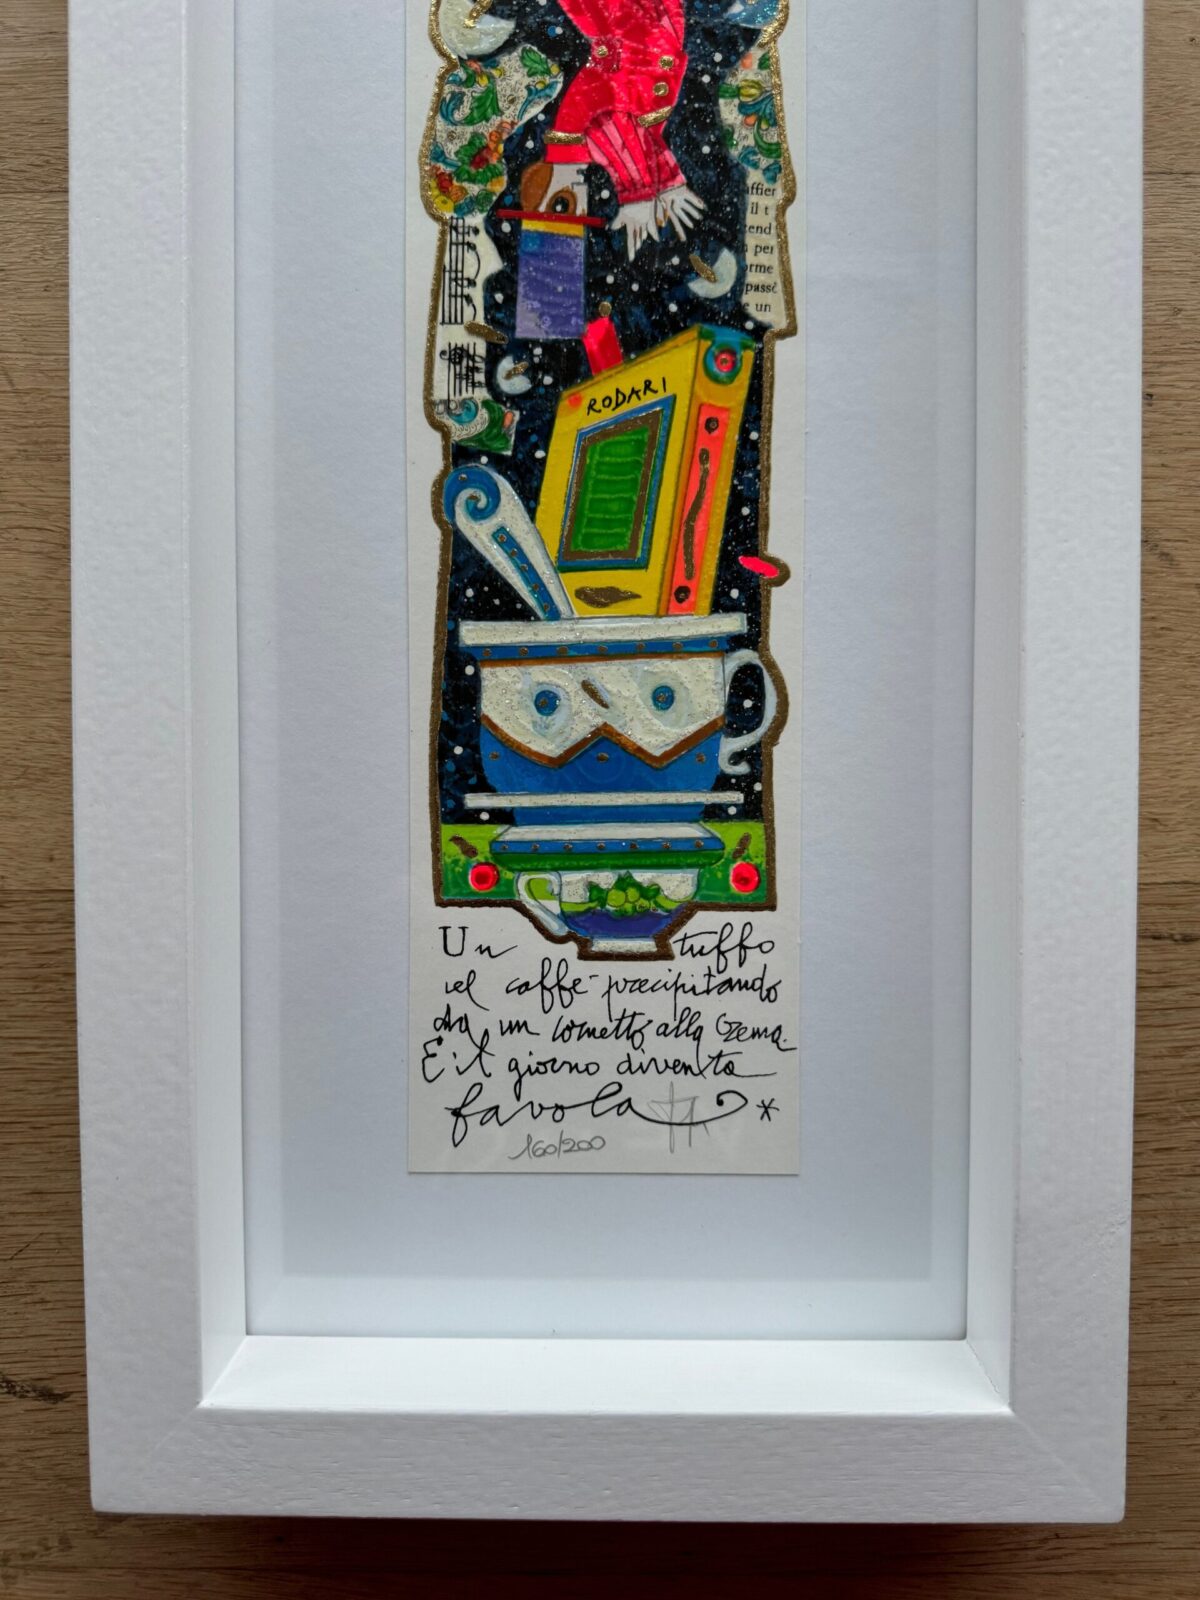 affier
il t
cend
per
orme
passò
e un
RODARI
Un tuffo
nel caffè precipitando
da un cornetto alla crema.
E il giorno diventa
favola *
160/200